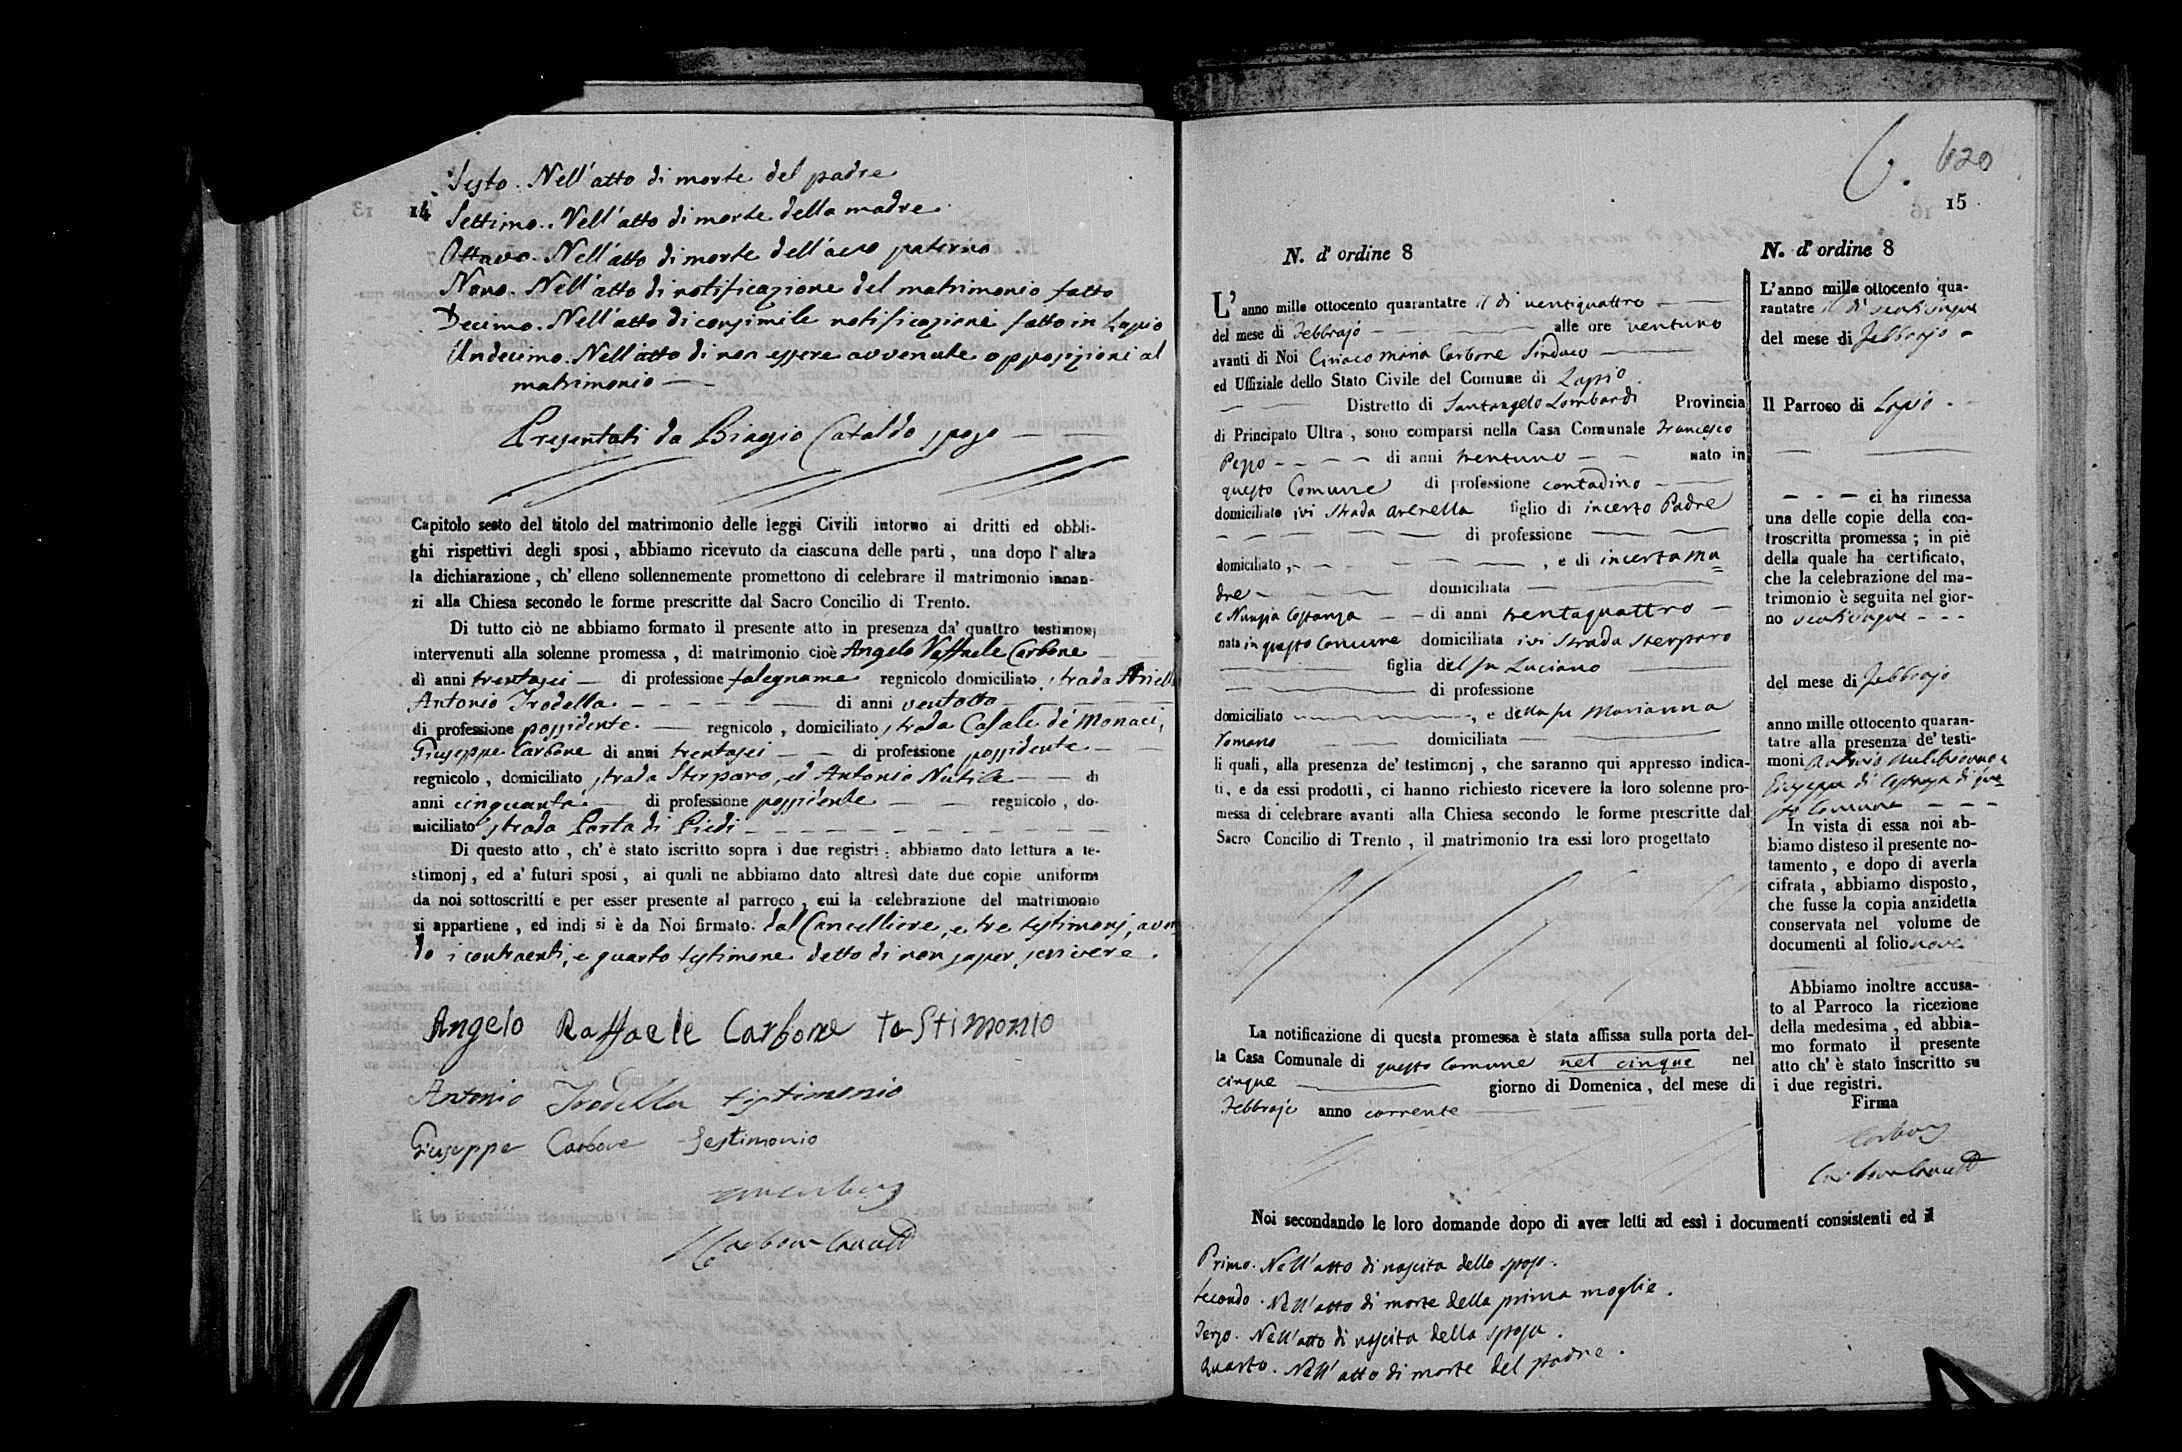 14
Sesto. Nell'atto di morte del padre
Settimo. Nell'atto di morte della madre
Ottavo. Nell'atto di morte dell'avo paterno
Nono. Nell'atto di notificazione del matrimonio fatto
Decimo. Nell'atto di consimile notificazione fatto in Lapio
Undecimo. Nell'atto di non essere avvenute opposizioni al
matrimonio —
Presentati da Biagio Cataldo sposo — —
Capitolo sesto del titolo del matrimonio delle leggi Civili intorno ai dritti ed obbli-
ghi rispettivi degli sposi, abbiamo ricevuto da ciascuna delle parti, una dopo l'altra
la dichiarazione, ch'elleno sollennemente promettono di celebrare il matrimonio innan-
zi alla Chiesa secondo le forme prescritte dal Sacro Concilio di Trento.
Di tutto ciò ne abbiamo formato il presente atto in presenza da' quattro testimonj
intervenuti alla solenne promessa, di matrimonio cioè Angelo Raffaele Carbone
di anni trentasei — di professione falegname regnicolo domiciliato strada
Antonio Irodella — di anni ventotto —
di professione possidente — regnicolo, domiciliato strada Casale de' Monaci,
Giuseppe Carbone di anni trentasei — di professione possidente —
regnicolo, domiciliato strada Sterparo, ed Antonio — di
anni cinquanta — di professione possidente — — regnicolo, do-
miciliato strada Porta di Piedi —
Di questo atto, ch'è stato iscritto sopra i due registri, abbiamo dato lettura a te-
stimonj, ed a' futuri sposi, ai quali ne abbiamo dato altresì date due copie uniforms
da noi sottoscritti e per esser presente al parroco, cui la celebrazione del matrimonio
si appartiene, ed indi si è da Noi firmato. dal Cancelliere, e tre testimonj, aven
do i contraenti, e quarto testimone detto di non saper scrivere.
Angelo Raffaele Carbone testimonio
Antonio Irodella testimonio
Giuseppe Carbone testimonio
6. 620
15
N. d'ordine 8
L'anno mille ottocento quarantatre il dì ventiquattro —
del mese di Febbrajo — alle ore ventuno
avanti di Noi Ciriaco Maria Carbone Sindaco —
ed Uffiziale dello Stato Civile del Comune di Lapio.
— Distretto di Santangelo Lombardi Provincia
di Principato Ultra, sono comparsi nella Casa Comunale Francesco
Pezzo — di anni trentuno — nato in
questo Comune di professione contadino —
domiciliato ivi strada Arenella figlio di incerto Padre
— di professione —
domiciliato, — , e di incerta Ma
dre — domiciliata —
e Nunzia Costanza — di anni trentaquattro —
nata in questo Comune domiciliata ivi strada Sterparo
— figlia del fu Luciano —
— di professione
domiciliato —, e della fu Marianna
Romano — domiciliata —
li quali, alla presenza de' testimonj, che saranno qui appresso indica-
ti, e da essi prodotti, ci hanno richiesto ricevere la loro solenne pro-
messa di celebrare avanti alla Chiesa secondo le forme prescritte dal
Sacro Concilio di Trento, il matrimonio tra essi loro progettato
La notificazione di questa promessa è stata affissa sulla porta del-
la Casa Comunale di questo Comune nel cinque nel
cinque — giorno di Domenica, del mese di
Febbrajo anno corrente —
Noi secondando le loro domande dopo di aver letti ad essi i documenti consistenti ed il
Primo. Nell'atto di nascita dello sposo.
Secondo. Nell'atto di morte della prima moglie.
Terzo. Nell'atto di nascita della sposa.
Quarto. Nell'atto di morte del padre.
N. d'ordine 8
L'anno mille ottocento qua-
rantatre il dì venticinque
del mese di Febbrajo —
Il Parroco di Lapio.
— ci ha rimessa
una delle copie della con-
troscritta promessa; in piè
della quale ha certificato,
che la celebrazione del ma-
trimonio è seguita nel gior-
no venticinque —
del mese di Febbrajo
anno mille ottocento quaran-
tatre alla presenza de' testi-
moni Antonio
Giuseppe di di que
sto Comune —
In vista di essa noi ab-
biamo disteso il presente no-
tamento, e dopo di averla
cifrata, abbiamo disposto,
che fusse la copia anzidetta
conservata nel volume de
documenti al folio nove
Abbiamo inoltre accusa-
to al Parroco la ricezione
della medesima, ed abbia-
mo formato il presente
atto ch'è stato inscritto su
i due registri.
Firma